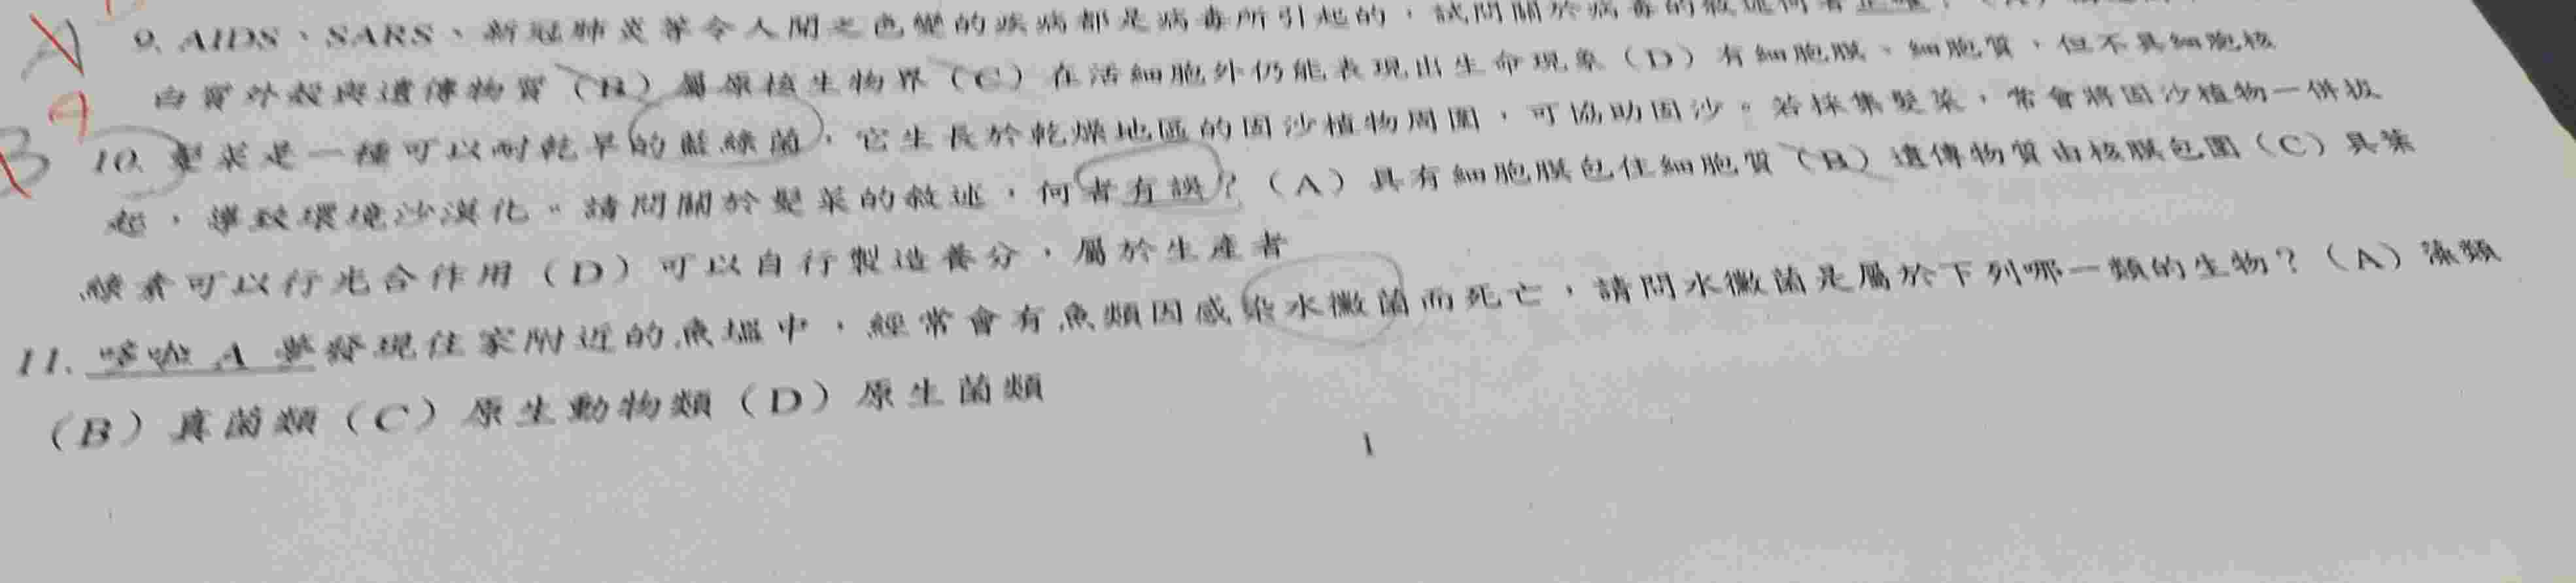 A 9. AIDS、SARS、新冠肺炎等令人聞之色變的疾病都是病毒所引起的，試問關於病毒的敘述何者正確？
白質外殼與遺傳物質（B）屬原核生物界（C）在活細胞外仍能表現出生命現象（D）有細胞膜、細胞質，但不具細胞核
B 10. 髮菜是一種可以耐乾旱的藍綠菌，它生長於乾燥地區的固沙植物周圍，可協助固沙。若採集髮菜，常會將固沙植物一併拔
起，導致環境沙漠化。請問關於髮菜的敘述，何者有誤？（A）具有細胞膜包住細胞質（B）遺傳物質由核膜包圍（C）具葉
綠素可以行光合作用（D）可以自行製造養分，屬於生產者
11. 哆啦A夢發現住家附近的魚塭中，經常會有魚類因感染水黴菌而死亡，請問水黴菌是屬於下列哪一類的生物？（A）藻類
（B）真菌類（C）原生動物類（D）原生菌類
1